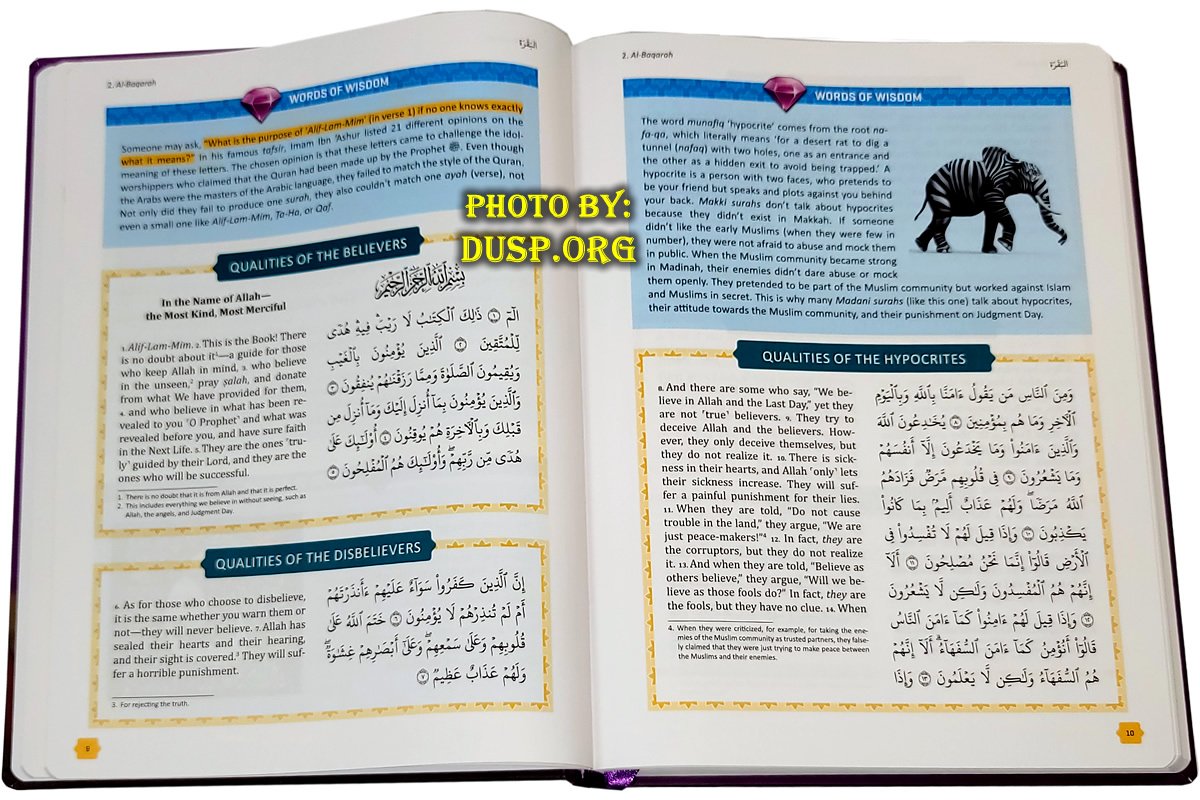 2. Al-Baqarah
البَقَرَة
WORDS OF WISDOM
Someone may ask, "What is the purpose of 'Alif-Lam-Mim' (in verse 1) if no one knows exactly
what it means?" In his famous tafsir, Imam Ibn 'Ashur listed 21 different opinions on the
meaning of these letters. The chosen opinion is that these letters came to challenge the idol-
worshippers who claimed that the Quran had been made up by the Prophet ﷺ. Even though
the Arabs were the masters of the Arabic language, they failed to match the style of the Quran.
Not only did they fail to produce one surah, they also couldn't match one ayah (verse), not
even a small one like Alif-Lam-Mim, Ta-Ha, or Qaf.
QUALITIES OF THE BELIEVERS
In the Name of Allah—
the Most Kind, Most Merciful
1. Alif-Lam-Mim. 2. This is the Book! There
is no doubt about it¹—a guide for those
who keep Allah in mind, 3. who believe
in the unseen,² pray salah, and donate
from what We have provided for them,
4. and who believe in what has been re-
vealed to you ˹O Prophet˺ and what was
revealed before you, and have sure faith
in the Next Life. 5. They are the ones ˹tru-
ly˺ guided by their Lord, and they are the
ones who will be successful.
1. There is no doubt that it is from Allah and that it is perfect.
2. This includes everything we believe in without seeing, such as
Allah, the angels, and Judgment Day.
بِسْمِ ٱللَّهِ ٱلرَّحْمَٰنِ ٱلرَّحِيمِ
الٓمٓ ١ ذَٰلِكَ ٱلْكِتَٰبُ لَا رَيْبَ ۛ فِيهِ ۛ هُدًى
لِّلْمُتَّقِينَ ٢ ٱلَّذِينَ يُؤْمِنُونَ بِٱلْغَيْبِ
وَيُقِيمُونَ ٱلصَّلَوٰةَ وَمِمَّا رَزَقْنَٰهُمْ يُنفِقُونَ ٣
وَٱلَّذِينَ يُؤْمِنُونَ بِمَآ أُنزِلَ إِلَيْكَ وَمَآ أُنزِلَ مِن
قَبْلِكَ وَبِٱلْـَٔاخِرَةِ هُمْ يُوقِنُونَ ٤ أُو۟لَٰٓئِكَ عَلَىٰ
هُدًى مِّن رَّبِّهِمْ ۖ وَأُو۟لَٰٓئِكَ هُمُ ٱلْمُفْلِحُونَ ٥
QUALITIES OF THE DISBELIEVERS
6. As for those who choose to disbelieve,
it is the same whether you warn them or
not—they will never believe. 7. Allah has
sealed their hearts and their hearing,
and their sight is covered.³ They will suf-
fer a horrible punishment.
3. For rejecting the truth.
إِنَّ ٱلَّذِينَ كَفَرُوا۟ سَوَآءٌ عَلَيْهِمْ ءَأَنذَرْتَهُمْ
أَمْ لَمْ تُنذِرْهُمْ لَا يُؤْمِنُونَ ٦ خَتَمَ ٱللَّهُ عَلَىٰ
قُلُوبِهِمْ وَعَلَىٰ سَمْعِهِمْ ۖ وَعَلَىٰٓ أَبْصَٰرِهِمْ غِشَٰوَةٌ ۖ
وَلَهُمْ عَذَابٌ عَظِيمٌ ٧
9
PHOTO BY:
DUSP.ORG
2. Al-Baqarah
البَقَرَة
WORDS OF WISDOM
The word munafiq 'hypocrite' comes from the root na-
fa-qa, which literally means 'for a desert rat to dig a
tunnel (nafaq) with two holes, one as an entrance and
the other as a hidden exit to avoid being trapped.' A
hypocrite is a person with two faces, who pretends to
be your friend but speaks and plots against you behind
your back. Makki surahs don't talk about hypocrites
because they didn't exist in Makkah. If someone
didn't like the early Muslims (when they were few in
number), they were not afraid to abuse and mock them
in public. When the Muslim community became strong
in Madinah, their enemies didn't dare abuse or mock
them openly. They pretended to be part of the Muslim community but worked against Islam
and Muslims in secret. This is why many Madani surahs (like this one) talk about hypocrites,
their attitude towards the Muslim community, and their punishment on Judgment Day.
QUALITIES OF THE HYPOCRITES
8. And there are some who say, "We be-
lieve in Allah and the Last Day," yet they
are not ˹true˺ believers. 9. They try to
deceive Allah and the believers. How-
ever, they only deceive themselves, but
they do not realize it. 10. There is sick-
ness in their hearts, and Allah ˹only˺ lets
their sickness increase. They will suf-
fer a painful punishment for their lies.
11. When they are told, "Do not cause
trouble in the land," they argue, "We are
just peace-makers!"⁴ 12. In fact, they are
the corruptors, but they do not realize
it. 13. And when they are told, "Believe as
others believe," they argue, "Will we be-
lieve as those fools do?" In fact, they are
the fools, but they have no clue. 14. When
4. When they were criticized, for example, for taking the ene-
mies of the Muslim community as trusted partners, they false-
ly claimed that they were just trying to make peace between
the Muslims and their enemies.
وَمِنَ ٱلنَّاسِ مَن يَقُولُ ءَامَنَّا بِٱللَّهِ وَبِٱلْيَوْمِ
ٱلْـَٔاخِرِ وَمَا هُم بِمُؤْمِنِينَ ٨ يُخَٰدِعُونَ ٱللَّهَ
وَٱلَّذِينَ ءَامَنُوا۟ وَمَا يَخْدَعُونَ إِلَّآ أَنفُسَهُمْ
وَمَا يَشْعُرُونَ ٩ فِى قُلُوبِهِم مَّرَضٌ فَزَادَهُمُ
ٱللَّهُ مَرَضًا ۖ وَلَهُمْ عَذَابٌ أَلِيمٌۢ بِمَا كَانُوا۟
يَكْذِبُونَ ١٠ وَإِذَا قِيلَ لَهُمْ لَا تُفْسِدُوا۟ فِى
ٱلْأَرْضِ قَالُوٓا۟ إِنَّمَا نَحْنُ مُصْلِحُونَ ١١ أَلَآ
إِنَّهُمْ هُمُ ٱلْمُفْسِدُونَ وَلَٰكِن لَّا يَشْعُرُونَ
١٢ وَإِذَا قِيلَ لَهُمْ ءَامِنُوا۟ كَمَآ ءَامَنَ ٱلنَّاسُ
قَالُوٓا۟ أَنُؤْمِنُ كَمَآ ءَامَنَ ٱلسُّفَهَآءُ ۗ أَلَآ إِنَّهُمْ
هُمُ ٱلسُّفَهَآءُ وَلَٰكِن لَّا يَعْلَمُونَ ١٣ وَإِذَا
10